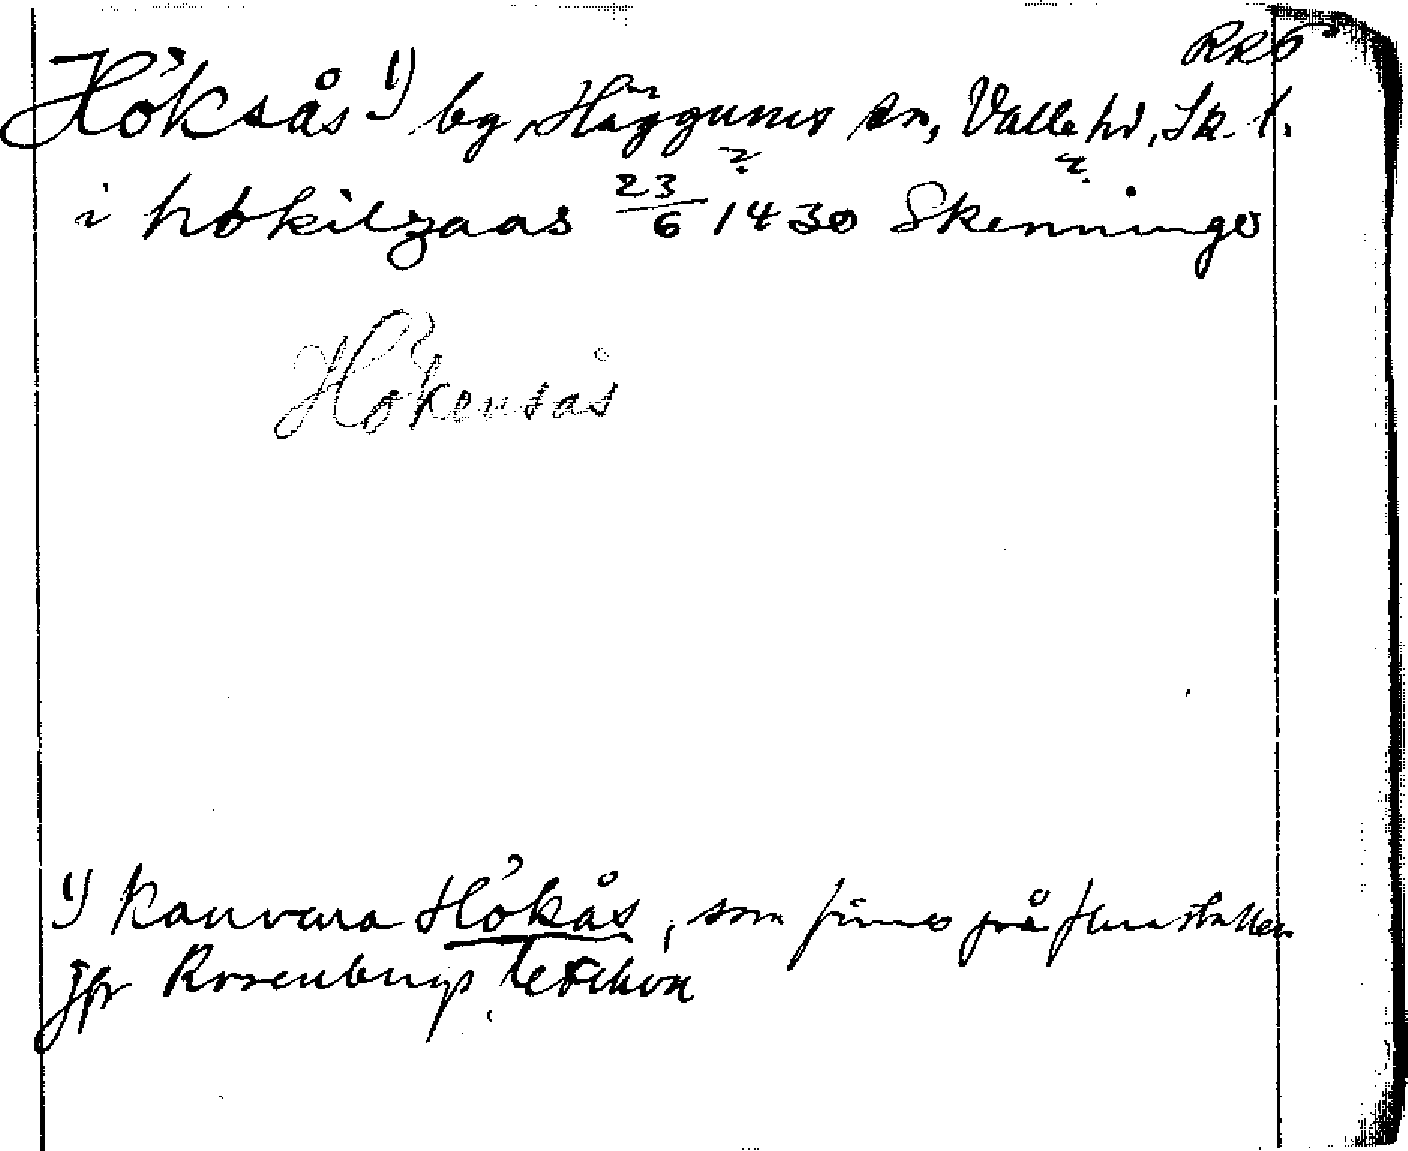 RRS
Höksås 1) by, Häggums sn, Valle hd, Sk. l.
? ?
i hökilzaas 23/6 1430 Skenninge
Hökensås
1) Kan vara Hökås, som finnes på flera ställen
Jfr Rosenbergs lexikon